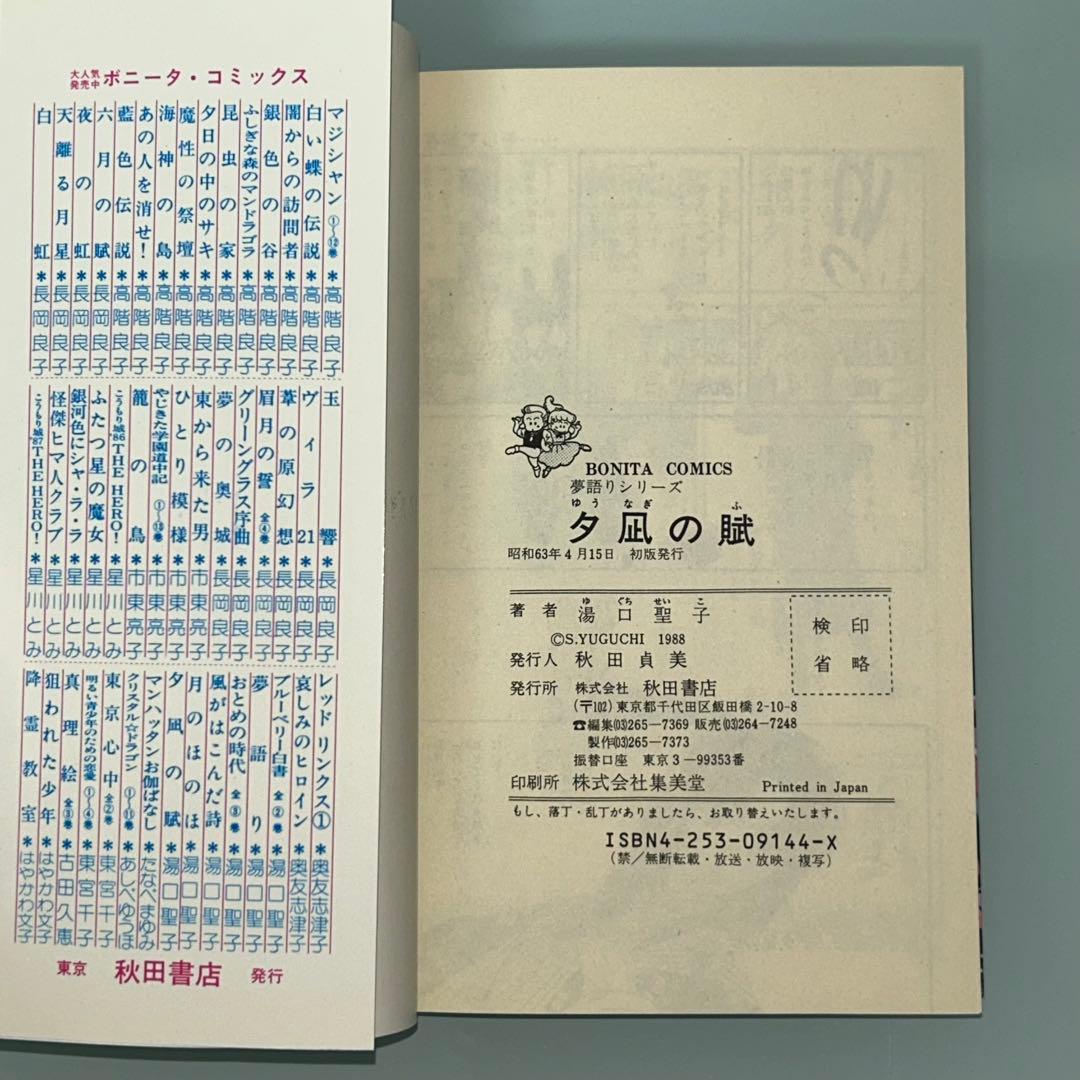 大人気発売中 ボニータ・コミックス
マジシャン ①〜⑫巻 *高階良子
白い蝶の伝説*高階良子
闇からの訪問者*高階良子
銀色の谷*高階良子
ふしぎな森のマンドラゴラ*高階良子
昆虫の家*高階良子
夕日の中のサキ*高階良子
魔性の祭壇*高階良子
海神の島*高階良子
あの人を消せ!*高階良子
藍色伝説*高階良子
六月の賦*長岡良子
夜の虹*長岡良子
天離る月星*長岡良子
白虹*長岡良子
玉響*長岡良子
ヴィラ21*長岡良子
葦の原幻想*長岡良子
眉月の誓 全④巻 *長岡良子
グリーングラス序曲*長岡良子
夢の奥城*長岡良子
東から来た男*市東亮子
ひとり模様*市東亮子
やじきた学園道中記 ①〜⑬巻 *市東亮子
籠の鳥*市東亮子
こうもり城'86 THE HERO!*星川とみ
ふたつ星の魔女*星川とみ
銀河色にシャ・ラ・ラ*星川とみ
怪傑ヒマ人クラブ*星川とみ
こうもり城'87 THE HERO!*星川とみ
レッドリンクス①*奥友志津子
哀しみのヒロイン*奥友志津子
ブルーベリー白書 全②巻 *湯口聖子
夢語り*湯口聖子
おとめの時代 全③巻 *湯口聖子
風がはこんだ詩*湯口聖子
月のほのほ*湯口聖子
夕凪の賦*湯口聖子
マンハッタンお伽ばなし*たなべまゆみ
クリスタル☆ドラゴン ①〜⑪巻 *あしべゆうほ
東京心中 全②巻 *東宮千子
明るい青少年のための恋愛 ①〜④巻 *東宮千子
真理絵 全③巻 *古田久恵
狙われた少年*はやかわ文子
降霊教室*はやかわ文子
東京 秋田書店 発行
BONITA COMICS
夢語りシリーズ
ゆうなぎ ふ
夕凪の賦
昭和63年4月15日 初版発行
ゆぐちせいこ
著者 湯口聖子
©S.YUGUCHI 1988
発行人 秋田貞美
発行所 株式会社 秋田書店
(〒102)東京都千代田区飯田橋2-10-8
☎編集(03)265-7369 販売(03)264-7248
製作(03)265-7373
振替口座 東京3-99353番
印刷所 株式会社集美堂 Printed in Japan
検印
省略
もし、落丁・乱丁がありましたら、お取り替えいたします。
ISBN4-253-09144-X
(禁/無断転載・放送・放映・複写)